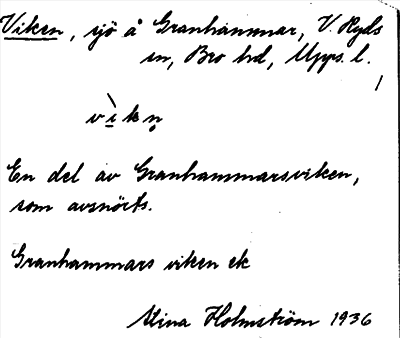 Viken, sjö å Granhammar, V. Ryds
sn, Bro hd, Upps. l.
vìkn̥
En del av Granhammarsviken,
som avsnörts.
Granhammars viken ek
Stina Holmström 1936